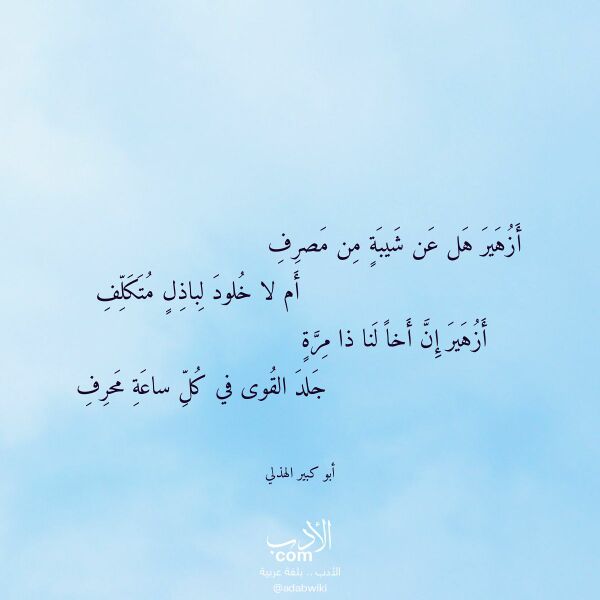 أَزُهَيرَ هَل عَن شَيبَةٍ مِن مَصرِفِ
أَم لا خُلودَ لِباذِلٍ مُتَكَلِّفِ
أَزُهَيرَ إِنَّ أَخاً لَنا ذا مِرَّةٍ
جَلدَ القُوى في كُلِّ ساعَةِ مَحرِفِ
أبو كبير الهذلي
الأدب
com
الأدب .. بلغة عربية
@adabwiki